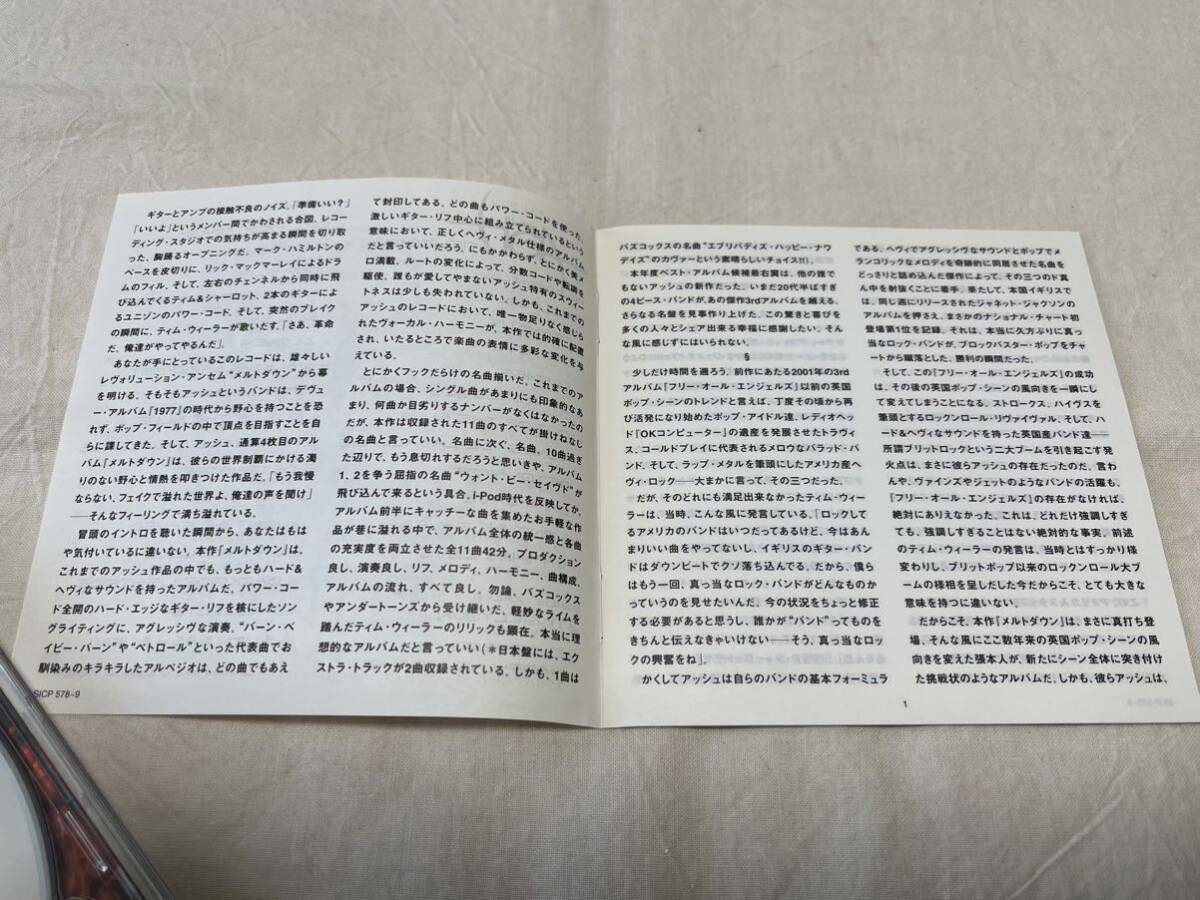 ギターとアンプの接触不良のノイズ、「準備いい？」
「いいよ」というメンバー間でかわされる合図、レコー
ディング・スタジオでの気持ちが高まる瞬間を切り取
った、胸踊るオープニングだ。マーク・ハミルトンの
ベースを皮切りに、リック・マックマーレイによるドラ
ムのフィル、そして、左右のチェンネルから同時に飛
び込んでくるティム&シャーロット、2本のギターによ
るユニゾンのパワー・コード、そして、突然のブレイク
の瞬間に、ティム・ウィーラーが歌いだす。「さあ、革命
だ、俺達がやってやるんだ」。
あなたが手にとっているこのレコードは、雄々しい
レヴォリューション・アンセム“メルトダウン”から幕
を明ける。そもそもアッシュというバンドは、デヴュ
ー・アルバム『1977』の時代から野心を持つことを恐
れず、ポップ・フィールドの中で頂点を目指すことを自
らに課してきた。そして、アッシュ、通算4枚目のアル
バム『メルトダウン』は、彼らの世界制覇にかける濁
りのない野心と情熱を叩きつけた作品だ。「もう我慢
ならない、フェイクで溢れた世界よ、俺達の声を聞け」
――そんなフィーリングで満ち溢れている。
冒頭のイントロを聴いた瞬間から、あなたはもは
や気付いているに違いない。本作『メルトダウン』は、
これまでのアッシュ作品の中でも、もっともハード&
ヘヴィなサウンドを持ったアルバムだ。パワー・コー
ド全開のハード・エッジなギター・リフを核にしたソン
グライティングに、アグレッシヴな演奏。“バーン・ベ
イビー・バーン”や“ペトロール”といった代表曲でお
馴染みのキラキラしたアルペジオは、どの曲でもあえ
SICP 578~9
て封印してある。どの曲もパワー・コードを使った、
激しいギター・リフ中心に組み立てられているという
意味において、正しくヘヴィ・メタル仕様のアルバム
だと言っていいだろう。にもかかわらず、とにかく美メ
ロ満載、ルートの変化によって、分数コードや転調を
駆使、誰もが愛してやまないアッシュ特有のスウィー
トネスは少しも失われていない。しかも、これまでの
アッシュのレコードにおいて、唯一物足りなく感じら
れたヴォーカル・ハーモニーが、本作では的確に配置
され、いたるところで楽曲の表情に多彩な変化を与
えている。
とにかくフックだらけの名曲揃いだ。これまでのア
ルバムの場合、シングル曲があまりにも印象的なあ
まり、何曲か目劣りするナンバーがなくはなかったの
だが、本作は収録された11曲のすべてが掛けねなし
の名曲と言っていい。名曲に次ぐ、名曲。10曲過ぎ
た辺りで、もう息切れするだろうと思いきや、アルバム
1、2を争う屈指の名曲“ウォント・ビー・セイヴド”が
飛び込んで来るという具合。i-Pod時代を反映してか、
アルバム前半にキャッチーな曲を集めたお手軽な作
品が巷に溢れる中で、アルバム全体の統一感と各曲
の充実度を両立させた全11曲42分。プロダクション
良し、演奏良し、リフ、メロディ、ハーモニー、曲構成、
アルバムの流れ、すべて良し。勿論、バズコックス
やアンダートーンズから受け継いだ、軽妙なライムを
踏んだティム・ウィーラーのリリックも顕在。本当に理
想的なアルバムだと言っていい（＊日本盤には、エク
ストラ・トラックが2曲収録されている。しかも、1曲は
バズコックスの名曲“エブリバディズ・ハッピー・ナワ
デイズ”のカヴァーという素晴らしいチョイス!!）。
本年度ベスト・アルバム候補最右翼は、他の誰で
もないアッシュの新作だった。いまだ20代半ばすぎ
の4ピース・バンドが、あの傑作3rdアルバムを越える、
さらなる名盤を見事作り上げた。この驚きと喜びを
多くの人々とシェア出来る幸福に感謝したい。そん
な風に感じずにはいられない。
§
少しだけ時間を遡ろう。前作にあたる2001年の3rd
アルバム『フリー・オール・エンジェルズ』以前の英国
ポップ・シーンのトレンドと言えば、丁度その頃から再
び活発になり始めたポップ・アイドル達、レディオヘッ
ド『OKコンピューター』の遺産を発展させたトラヴィ
ス、コールドプレイに代表されるメロウなバラッド・バ
ンド、そして、ラップ・メタルを筆頭にしたアメリカ産ヘ
ヴィ・ロック――大まかに言って、その三つだった。
だが、そのどれにも満足出来なかったティム・ウィー
ラーは、当時、こんな風に発言している。「ロックしてる
アメリカのバンドはいつだってあるけど、今はあん
まりいい曲をやってないし、イギリスのギター・バン
ドはダウンビートでクソ落ち込んでる。だから、僕ら
はもう一回、真っ当なロック・バンドがどんなものか
っていうのを見せたいんだ。今の状況をちょっと修正
する必要があると思うし、誰かが“バンド”ってものを
きちんと伝えなきゃいけない――そう、真っ当なロッ
クの興奮をね」。
かくしてアッシュは自らのバンドの基本フォーミュラ
である、ヘヴィでアグレッシヴなサウンドとポップでメ
ランコリックなメロディを奇跡的に同居させた名曲を
どっさりと詰め込んだ傑作によって、その三つのド真
ん中を射抜くことに着手。果たして、本国イギリスで
は、同じ週にリリースされたジャネット・ジャクソンの
アルバムを押さえ、まさかのナショナル・チャート初
登場第1位を記録。それは、本当に久方ぶりに真っ
当なロック・バンドが、ブロックバスター・ポップをチャ
ートから蹴落とした、勝利の瞬間だった。
そして、この『フリー・オール・エンジェルズ』の成功
は、その後の英国ポップ・シーンの風向きを一瞬にし
て変えてしまうことになる。ストロークス、ハイヴスを
筆頭とするロックンロール・リヴァイヴァル、そして、ハ
ード&ヘヴィなサウンドを持った英国産バンド達――
所謂ブリットロックという二大ブームを引き起こす発
火点は、まさに彼らアッシュの存在だったのだ。言わ
んや、ヴァインズやジェットのようなバンドの活躍も、
『フリー・オール・エンジェルズ』の存在がなければ、
絶対にありえなかった。これは、どれだけ強調しすぎ
ても、強調しすぎることはない絶対的な事実。前述
のティム・ウィーラーの発言は、当時とはすっかり様
変わりし、ブリットポップ以来のロックンロール大ブ
ームの様相を呈しだした今だからこそ、とても大きな
意味を持つに違いない。
だからこそ、本作『メルトダウン』は、まさに真打ち登
場、そんな風にここ数年来の英国ポップ・シーンの風
向きを変えた張本人が、新たにシーン全体に突き付け
た挑戦状のようなアルバムだ。しかも、彼らアッシュは、
1